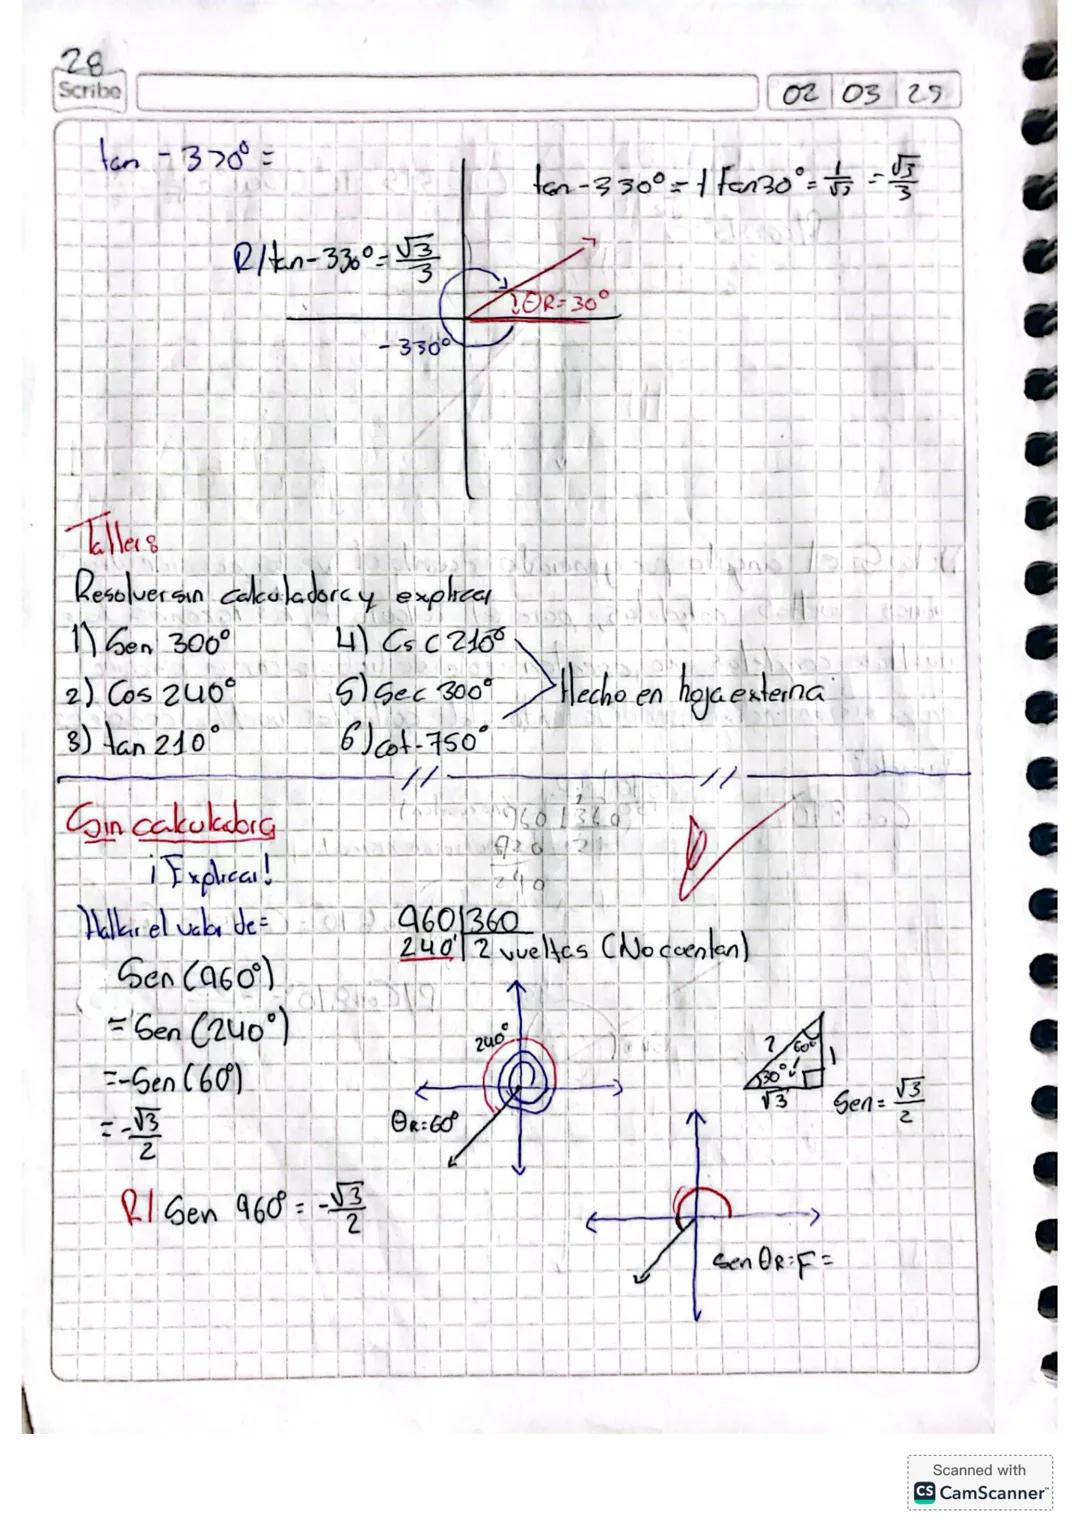 28
Scribe
02 03 25
tan - 330° =
tan -330° = + tan30° = 1/√3 = √3/3
R/tan-330° = √3/3
θR = 30°
-330°
Taller
Resolver sin calculadora y explicar
1) Sen 300°
4) Csc 210°
2) Cos 240°
5) Sec 300°
Hecho en hoja externa
3) tan 210°
6) cot -750°
Sin calculadora
¡Explicar!
Hallar el valor de =
960 | 360
240 | 2 vueltas (No cuentan)
Sen (960°)
= Sen (240°)
= -Sen (60°)
= -√3/2
240°
θR = 60°
2 60° 1
30°
√3
Sen = √3/2
R/ Sen 960° = -√3/2
Sen θR = F =
Scanned with
CS CamScanner